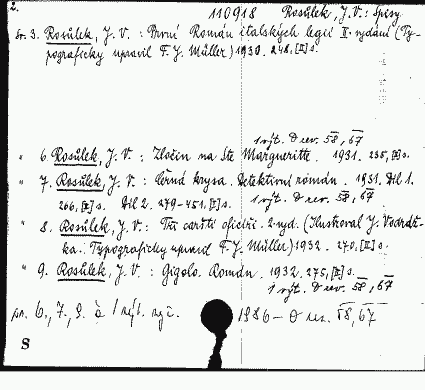 2.
110918 Rosůlek, J. V.: Spisy.
sv. 3. Rosůlek, J. V. : První Román italských legií II. vydání (Ty-
pograficky upravil F. J. Müller) 1930. 248, [II] s.
1 výt. D rev. 58, 67
" 6. Rosůlek, J. V. : Zločin na Ste Margueritte. 1931. 235, [I] s.
" 7. Rosůlek, J. V. : Černá krysa. Detektivní román. 1931. Díl 1.
266, [I] s. Díl 2. 279-451, [I] s. 1 výt. D rev. 58, 67
" 8. Rosůlek, J. V. : Tři carští oficíři. 2. vyd. (Ilustroval J. Vodráž-
ka. Typograficky upravil F. J. Müller) 1932. 270. [II] s.
" 9. Rosůlek, J. V. : Gigolo. Román. 1932. 275, [I] s.
1 výt. D rev. 58, 67
sv. 6., 7., 9. à 1 výt. 1986 - D rev. 58, 67
S